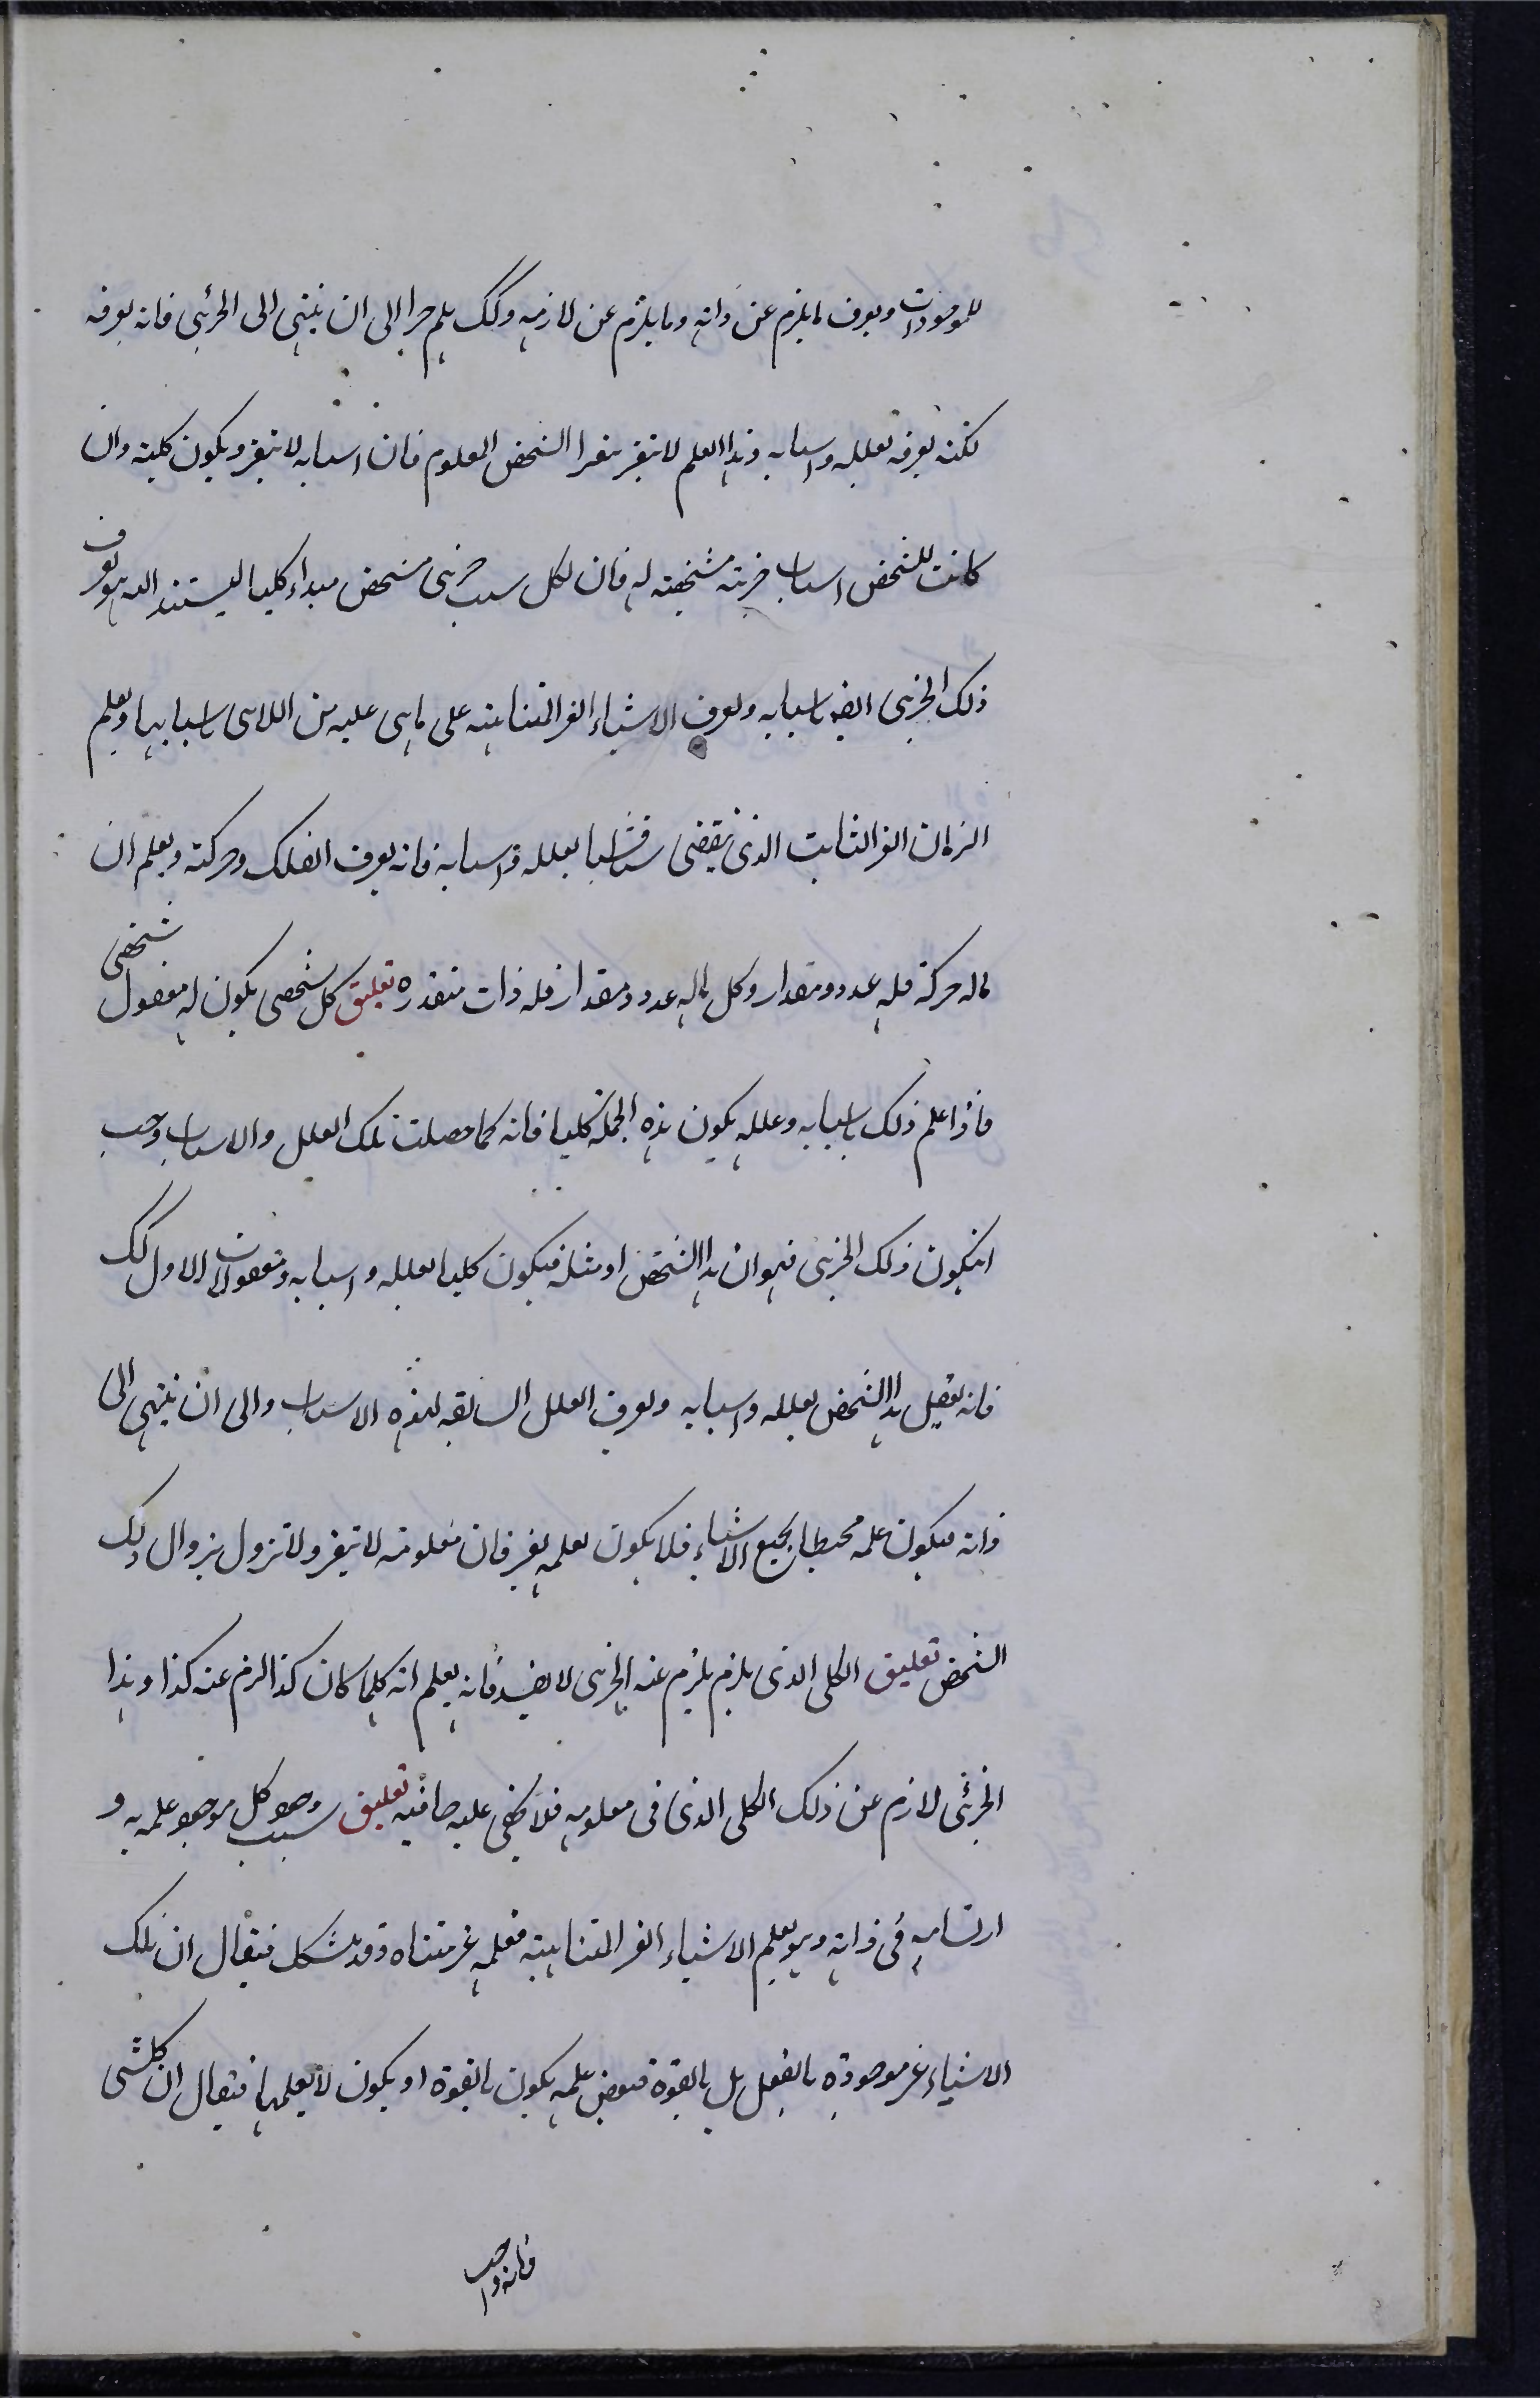 للموجودات ويعرف ما يلزم عن ذاته وما يلزم عن لازمه وكك هلم جرا الى ان ينتهى الى الجزئى فانه يعرفه
لكنه يعرفه بعلله واسبابه وهذا العلم لا يتغير بتغير الشخص المعلوم فان اسبابه لا يتغير ويكون كلية وان
كانت للشخص اسباب جزئية مشخصة له فان لكل سبب جزئى مشخص مبداء كليا ليستند اليه فهو يعرف
ذلك الجزئى ايضا باسبابه ويعرف الاشياء الغير المتناهية على ما هى عليه من اللاتناهى باسبابها ويعلم
الزمان الغير الثابت الذى يقضى شيئا فشيئا بعلله واسبابه فانه يعرف الفلك وحركته ويعلم ان
ما له حركة فله عدد ومقدار وكل ما له عدد ومقدار فله ذات متقدره تعليق كل شخصى يكون له معقول شخصى
فاذا علم ذلك باسبابه وعلله يكون هذه الجملة كليا فانه كما حصلت تلك العلل والاسباب وجب
ان يكون ذلك الجزئى فهو ان هذا الشخص او مثله فيكون كليا بعلله واسبابه ومعقولات الاول كك
فانه يعقل هذا الشخص بعلله واسبابه ويعرف العلل السابقه لهذه الاسباب والى ان ينتهى الى
ذاته فيكون علمه محيطا بجميع الاشياء فلا يكون لعلمه تغير فان معلومته لا يتغير ولا تزول بزوال ذلك
الشخص تعليق الكلى الذى يلزم يلزم عنه الجزئى لا يفسد فانه يعلم انه كلما كان كذا لزم عنه كذا وهذا
الجزئى لازم عن ذلك الكلى الذى فى معلومه فلا يخفى عليه خافيه تعليق سبب وجود كل موجود علمه به و
ارتسامه فى ذاته وهو يعلم الاشياء الغير المتناهية فعلمه غير متناه وقد يشكل فيقال ان تلك
الاشياء غير موجودة بالفعل بل بالقوة فبعض علمه يكون بالقوة او يكون لا يعلمها فيقال ان كلشى
فانه واجب